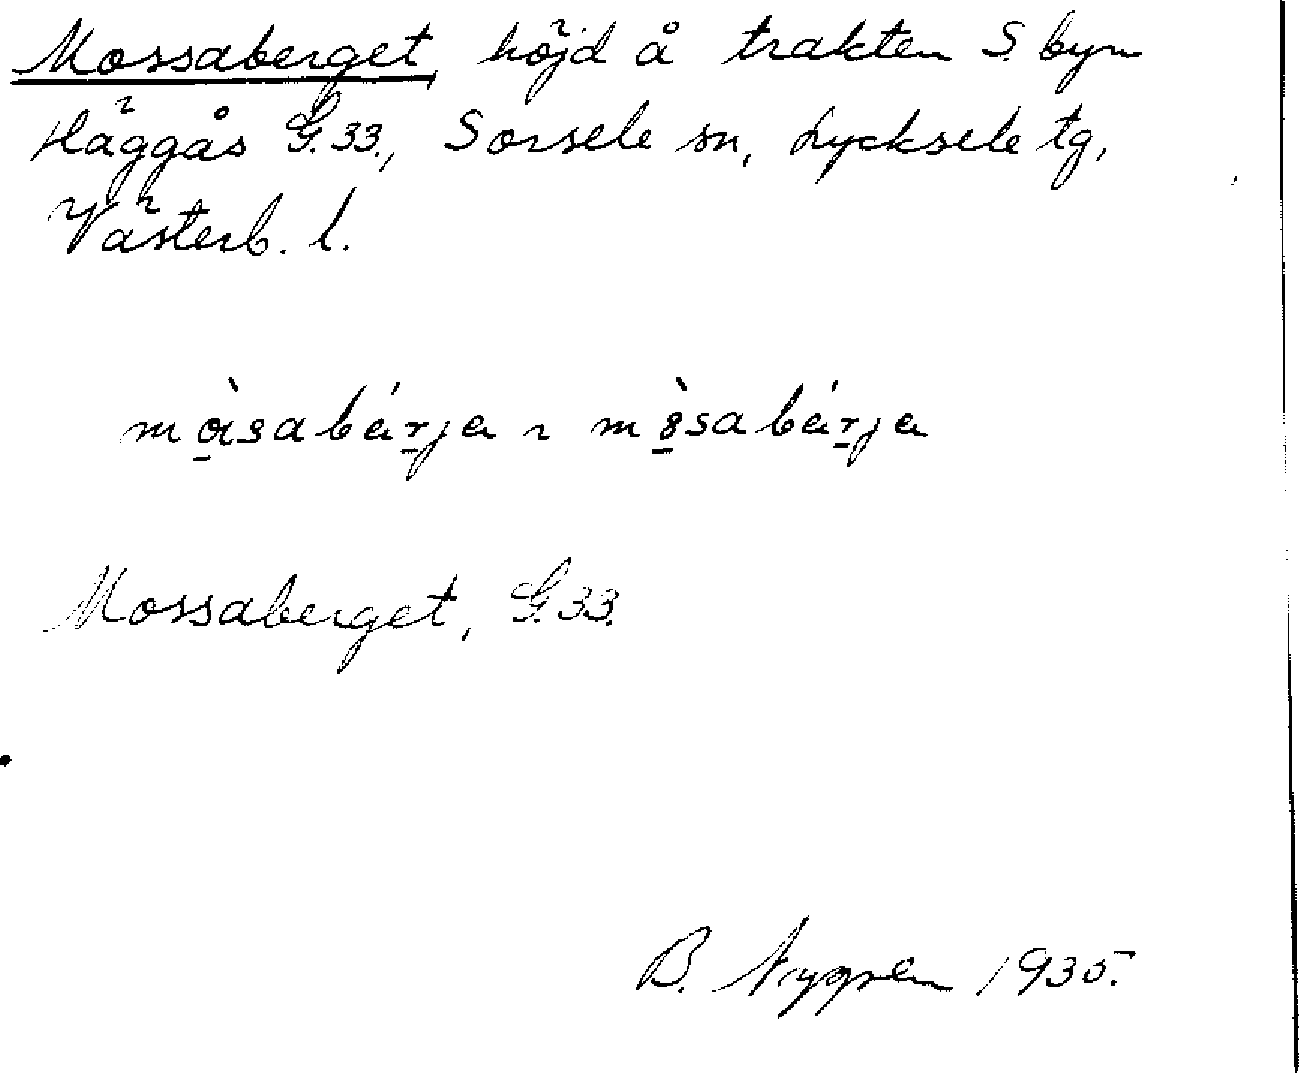 Mossaberget, höjd å trakten S. byn
Häggås G.33., Sorsele sn, Lycksele tg,
Västerb. l.
mòsabárja ~ mòsabárja
Mossaberget, G.33.
B. Nygren 1935.